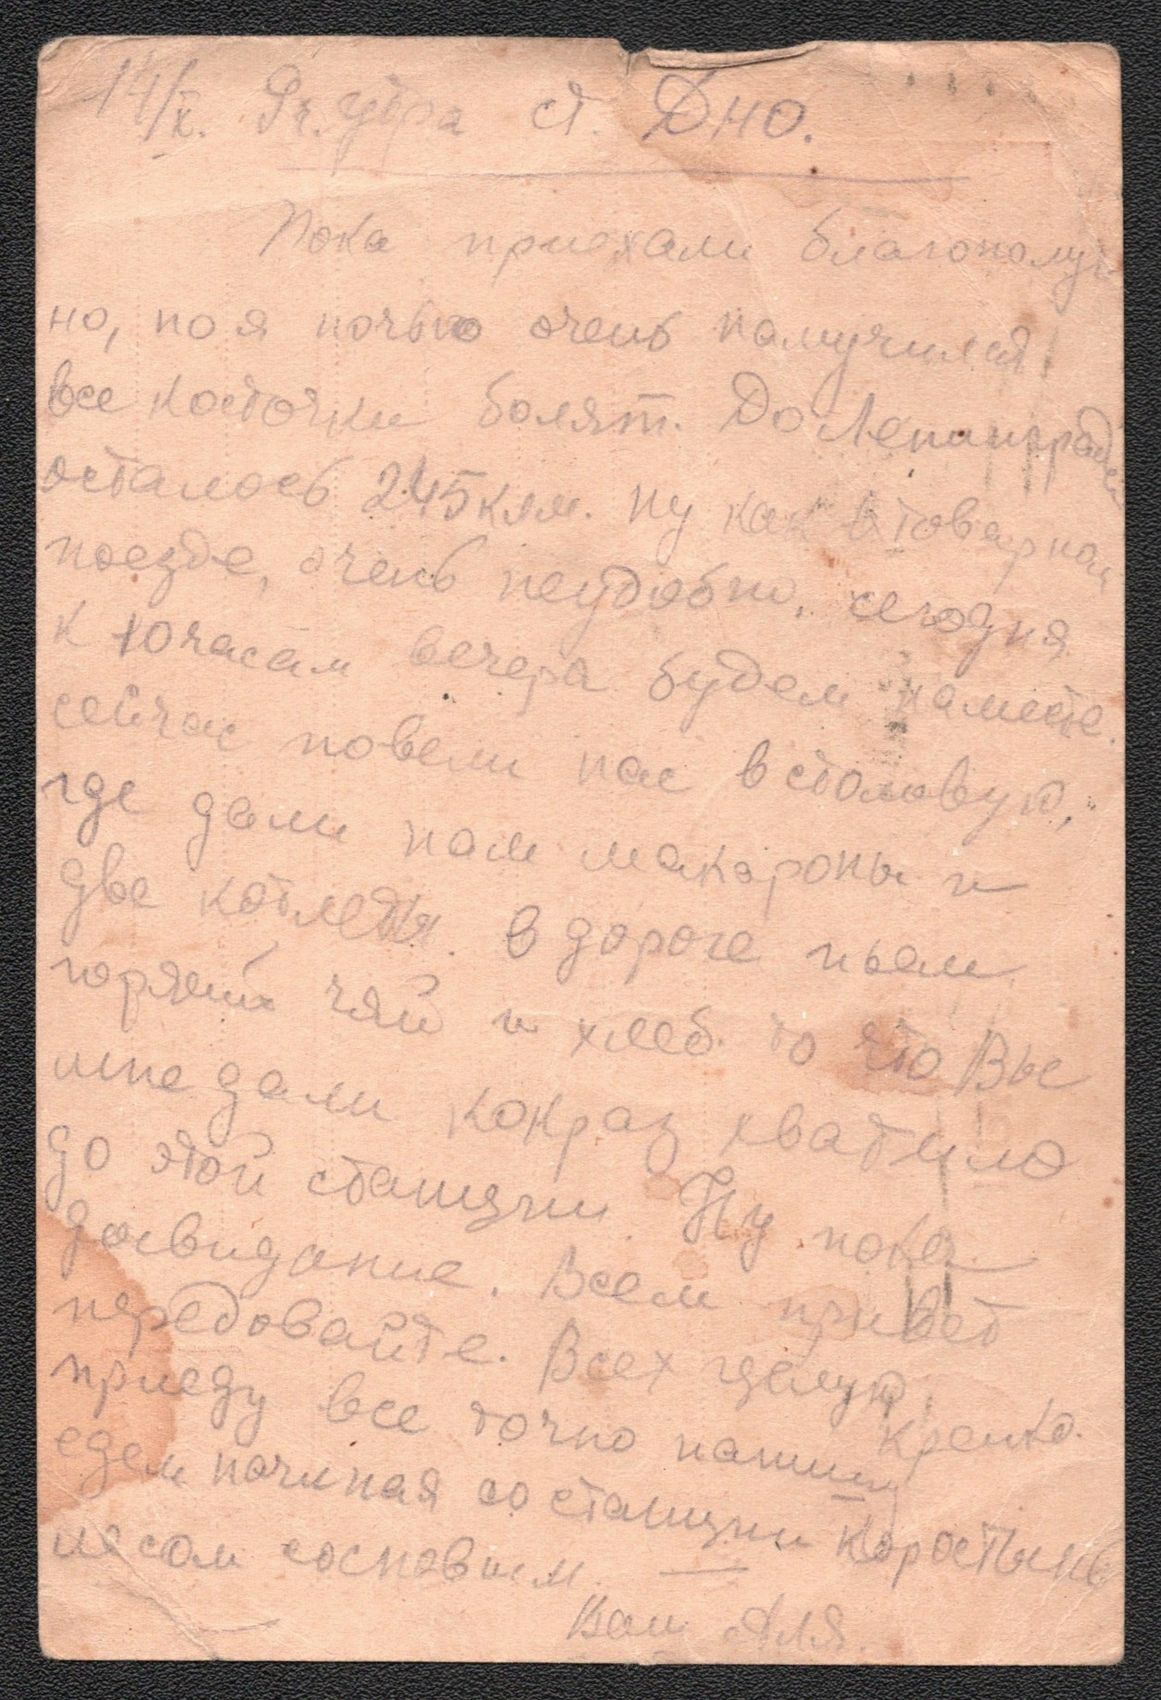 14/X. 9 ч. утра ст. Дно.
Пока приехали благополуч
но, но я ночью очень намучился
все косточки болят. До Ленинграда
осталось 245 клм. Ну как в товарном
поезде, очень неудобно, сегодня
к 10 часам вечера будем наместе.
сейчас повели нас в столовую,
где дали нам макароны и
две котлеты. в дороге пьем
горячий чай и хлеб. то что Вы
мне дали кокраз хватило
до этой станции. Ну пока
досвидание. Всем привет
передовайте. Всех целую крепко.
приеду все точно напишу
едем начиная со станции Коростынь
лесом сосновым.
Ваш Аля.